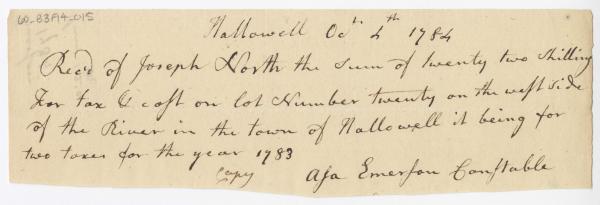 60_83A4_015
Hallowell Octr 4th 1784
Recd of Joseph North the sum of twenty two shilling
For tax & cost on lot Number twenty on the west side
of the River in the town of Hallowell it being for
two taxes for the year 1783
Copy Asa Emerson Constable